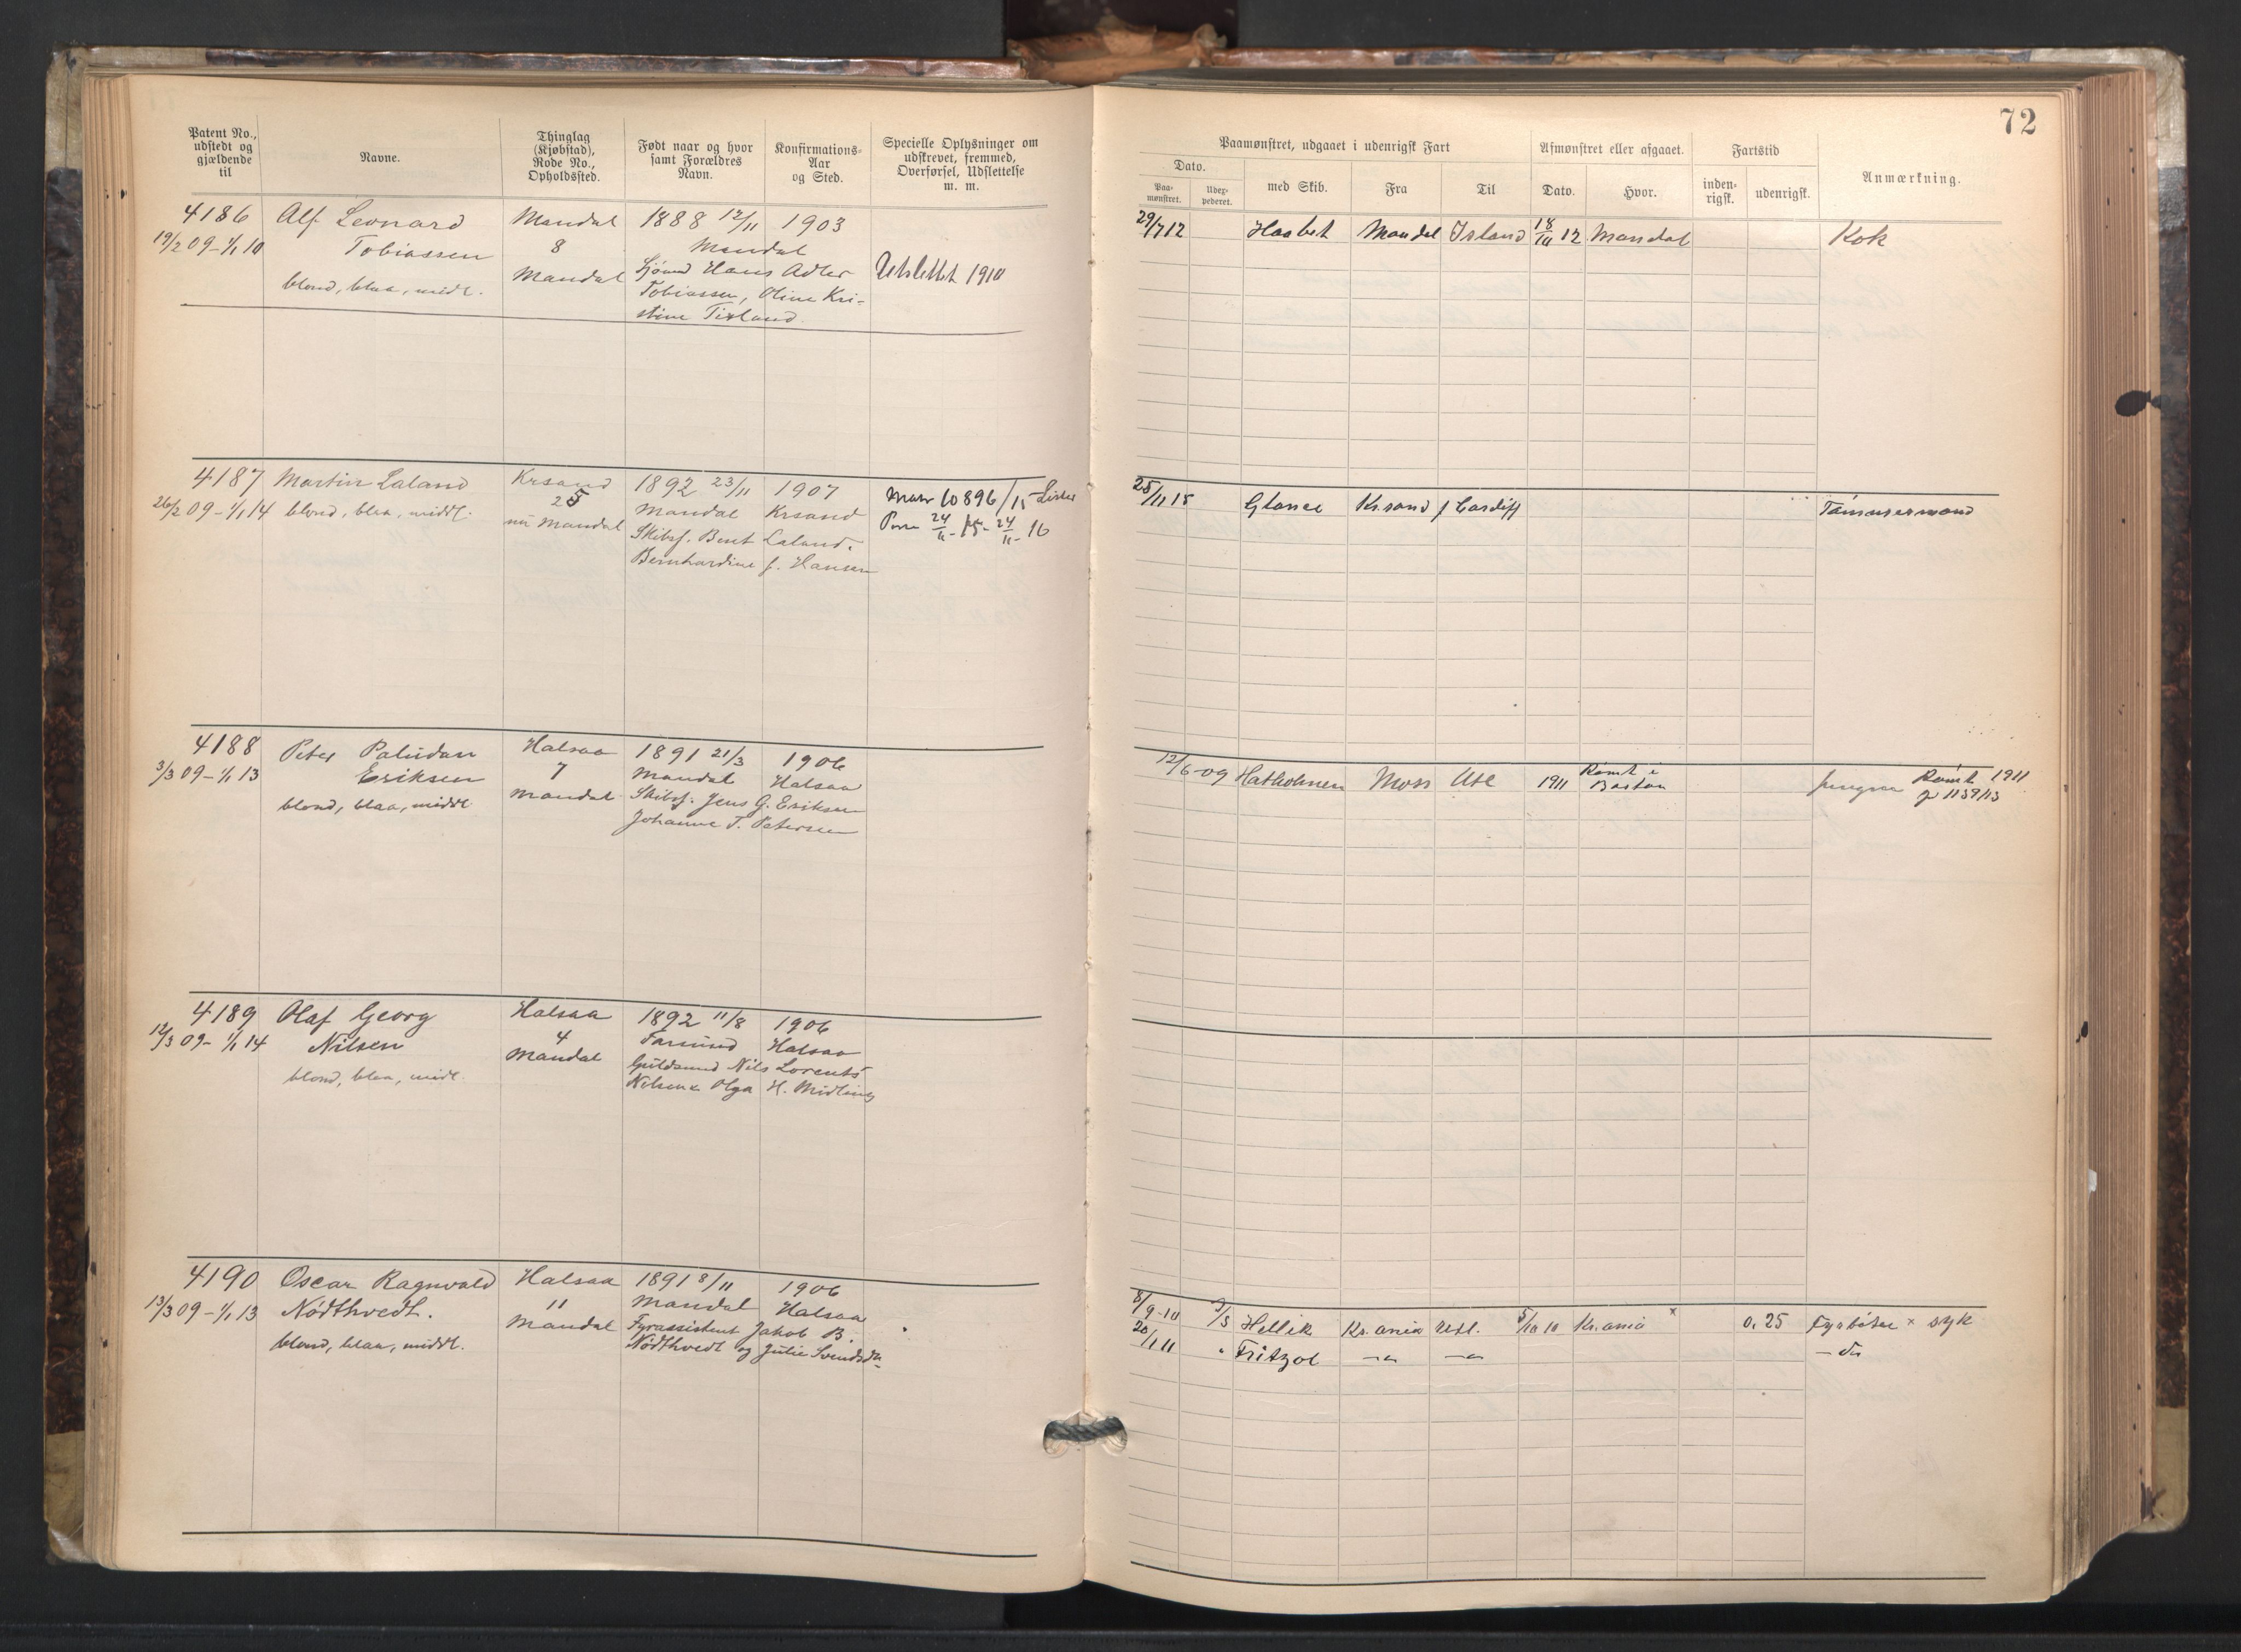 72
Patent No., udstedt og gjældende til
Navne.
Thinglag (Kjøbstad), Rode No., Opholdssted.
Født naar og hvor samt Forældres Navn.
Konfirmations-Aar og Sted.
Specielle Oplysninger om udskrevet, fremmed, Overførsel, Udslettelse m. m.
Paamønstret, udgaaet i udenrigsk Fart
Afmønstret eller afgaaet.
Fartstid
Anmærkning.
Dato.
Paa-mønstret.
Udex-pederet.
med Skib.
Fra
Til
Dato.
Hvor.
inden-rigsk.
udenrigsk.
4186 Alf Leonard Mandal 1888 12/11 1903
19/2 09 - 1/1 10 Tobiassen 8 Mandal
blond, blaa, midl. Mandal Sjømd Hans Adler Utslettet 1910
Tobiassen, Oline Kri-
stine Tisland
29/7 12 Haabet Mandal Island 18/10 12 Mandal Kok
4187 Martin Laland Krsand 1892 23/11 1907
26/2 09 - 1/1 14 blond, blaa, middl. 25 Mandal Krsand
nu Mandal Skibsf. Bent Laland.
Bernhardine f. Hansen
10896/15 Lister
24/11 - 15 - 24/11 - 16
25/11 15 Glance Kr.sand f Cardiff Tømmermand
4188 Peter Paludan Halsaa 1891 21/3 1906
3/3 09 - 1/1 13 Eriksen 7 Mandal Halsaa
blond, blaa, middl Mandal Skibsf. Jens G. Eriksen
Johanne T. Petersen
12/6-09 Hatholmen Moss Utl 1911 Rømt i Boston Jungm Rømt 1911
1139/13
4189 Olaf Georg Halsaa 1892 11/8 1906
12/3 09 - 1/1 14 Nilsen 4 Farsund Halsaa
blond, blaa, midl. Mandal Guldsmd Nils Lorents
Nilsen & Olga H. Midling
4190 Oscar Ragnvald Halsaa 1891 8/11 1906
13/3 09 - 1/1 13 Nødthvedt. 11 Mandal Halsaa
blond, blaa, middl. Mandal Fyrassistent Jakob B.
Nødthvedt og Julie Svendsdn
8/9-10 9/3 Hellik Kr.ania Utl. 5/10 10 Kr.ania x 0,25 Fyrbøter x syk
20/1 11 " Fritzøe —"— —"— — do